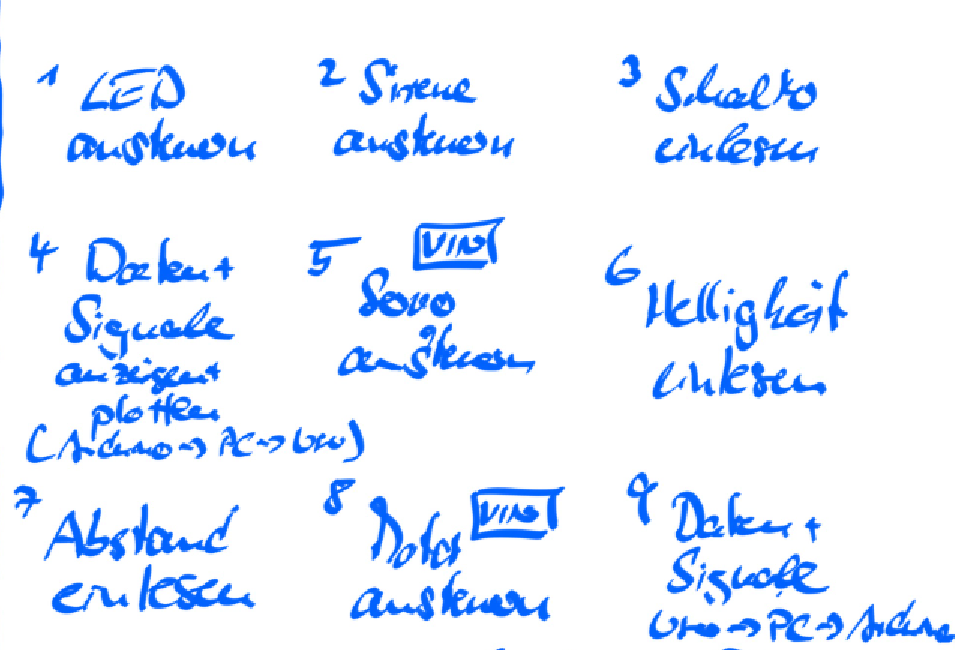 1 LED
ansteuern
2 Sirene
ansteuern
3 Schalter
einlesen
4 Daten +
Signale
anzeigen +
plotten
(Arduino → PC → User)
5 VIN
Servo
ansteuern
6 Helligkeit
einlesen
7 Abstand
einlesen
8 VIN
Motor
ansteuern
9 Daten +
Signale
User → PC → Arduino